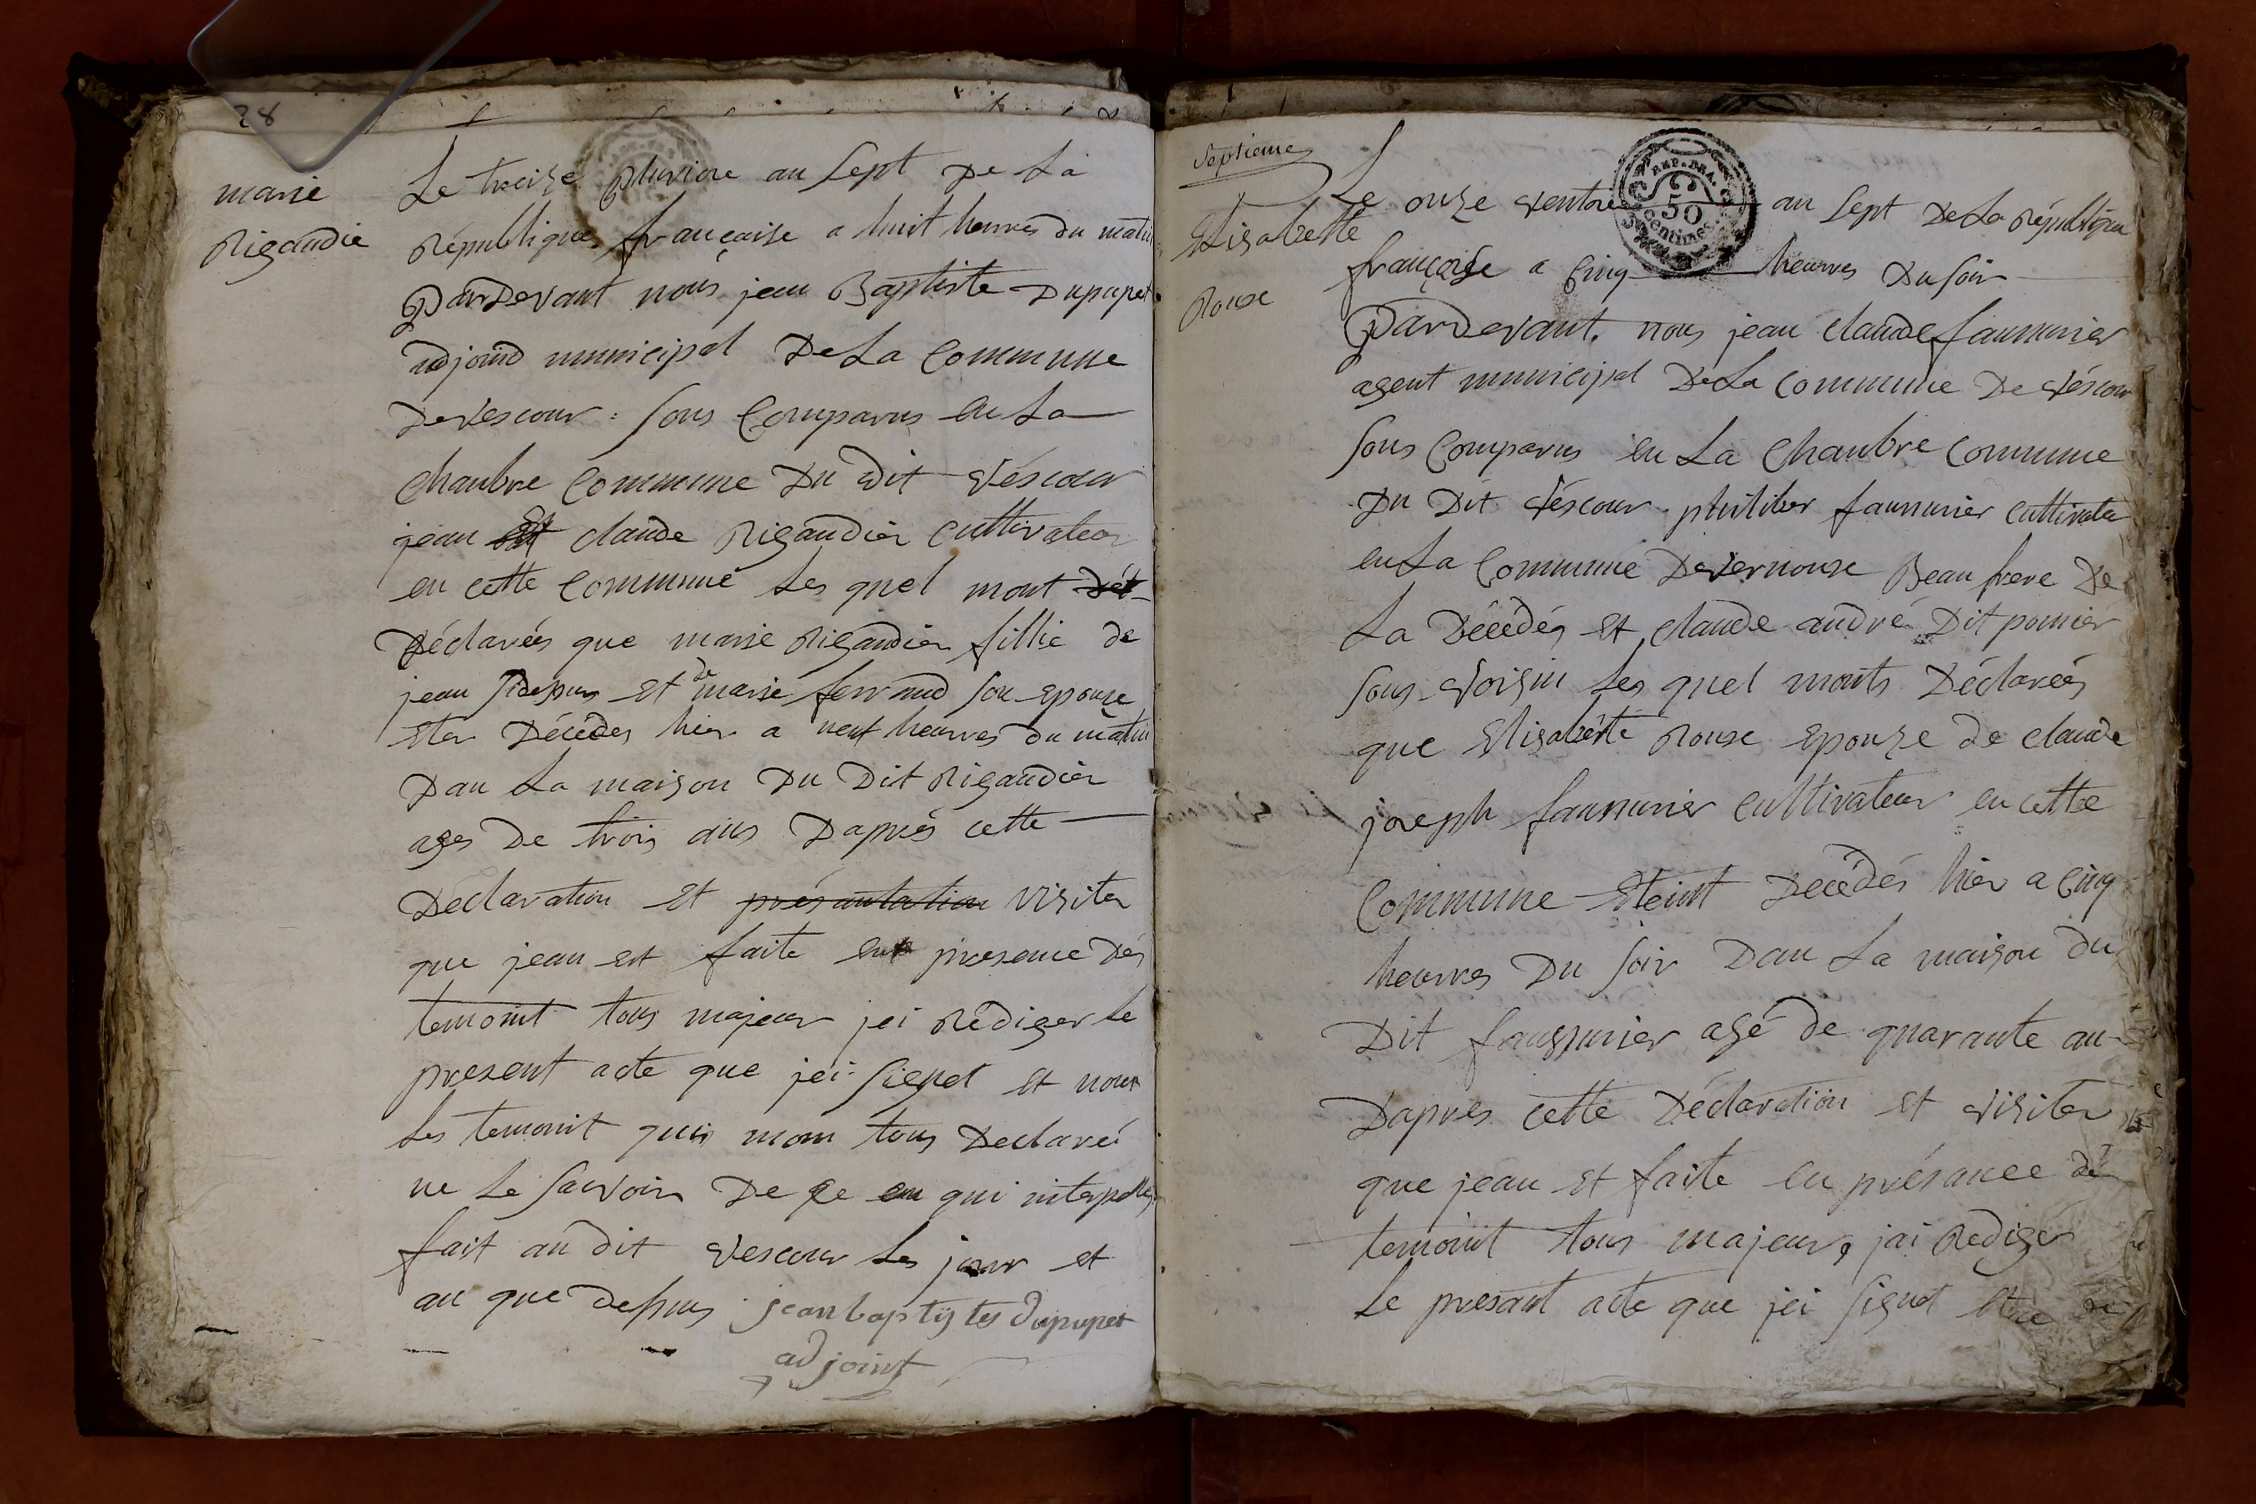 28
marie
Rigaudie
Le treize pluviose an sept De La
République française a huit heures du matin
ParDevant nous jean Baptiste Dupupet
adjoind municipal De La Commune
De vescour : sons Comparus en La
Chanbre Commune Du dit véscour
jean Et claude Rigaudier Cultivateur
en cette Commune Les quel mont Dét
Déclarées que marie Rigaudier fillie de
jean sidepus et de marie ferraud son epouze
Eter Décédes hier a neuf heurres du matin
Dan La maison Du Dit Rigaudier
ages De trois ans Daprés cette
Déclaration et présantation visiter
que jean est faite en presence Dés
temoint tous majeur jei Rédiger Le
present acte que jei signet et nont
Les temoint quis mon tous Declaré
ne Le savoir De ce en qui interpellés
fait au dit vescour Les jour et
an que dessus jean baptistes dupupet
adjoint
Septieme
Elisabette
Rouse
Le onze ventose an sept De La République
REP. FRA.
50
Centimes
françoise a Cinq heurres Du soir
ParDevant nous jean claude faussurier
agent municipal De La Commune De véscour
sons Comparus en La Chanbre Commune
Du Dit véscour philiber faussurier Cultivateur
en La Commune De vernouse Beau frere De
La Décédés et claude andré Dit pomier
sons voisin Les quel monts Déclarées
que Elisabéte Rouse epouze de claude
joseph faussurier Cultivateur en cette
Commune Eteint Decédés hier a Cinq
heurres Du soir Dan La maison du
Dit faussurier agé de quarante an
Dapres cette Déclaration et visiter
que jean et faite en présance dés
temoint tous majeur, jai Rediger
Le presant acte que jei signet